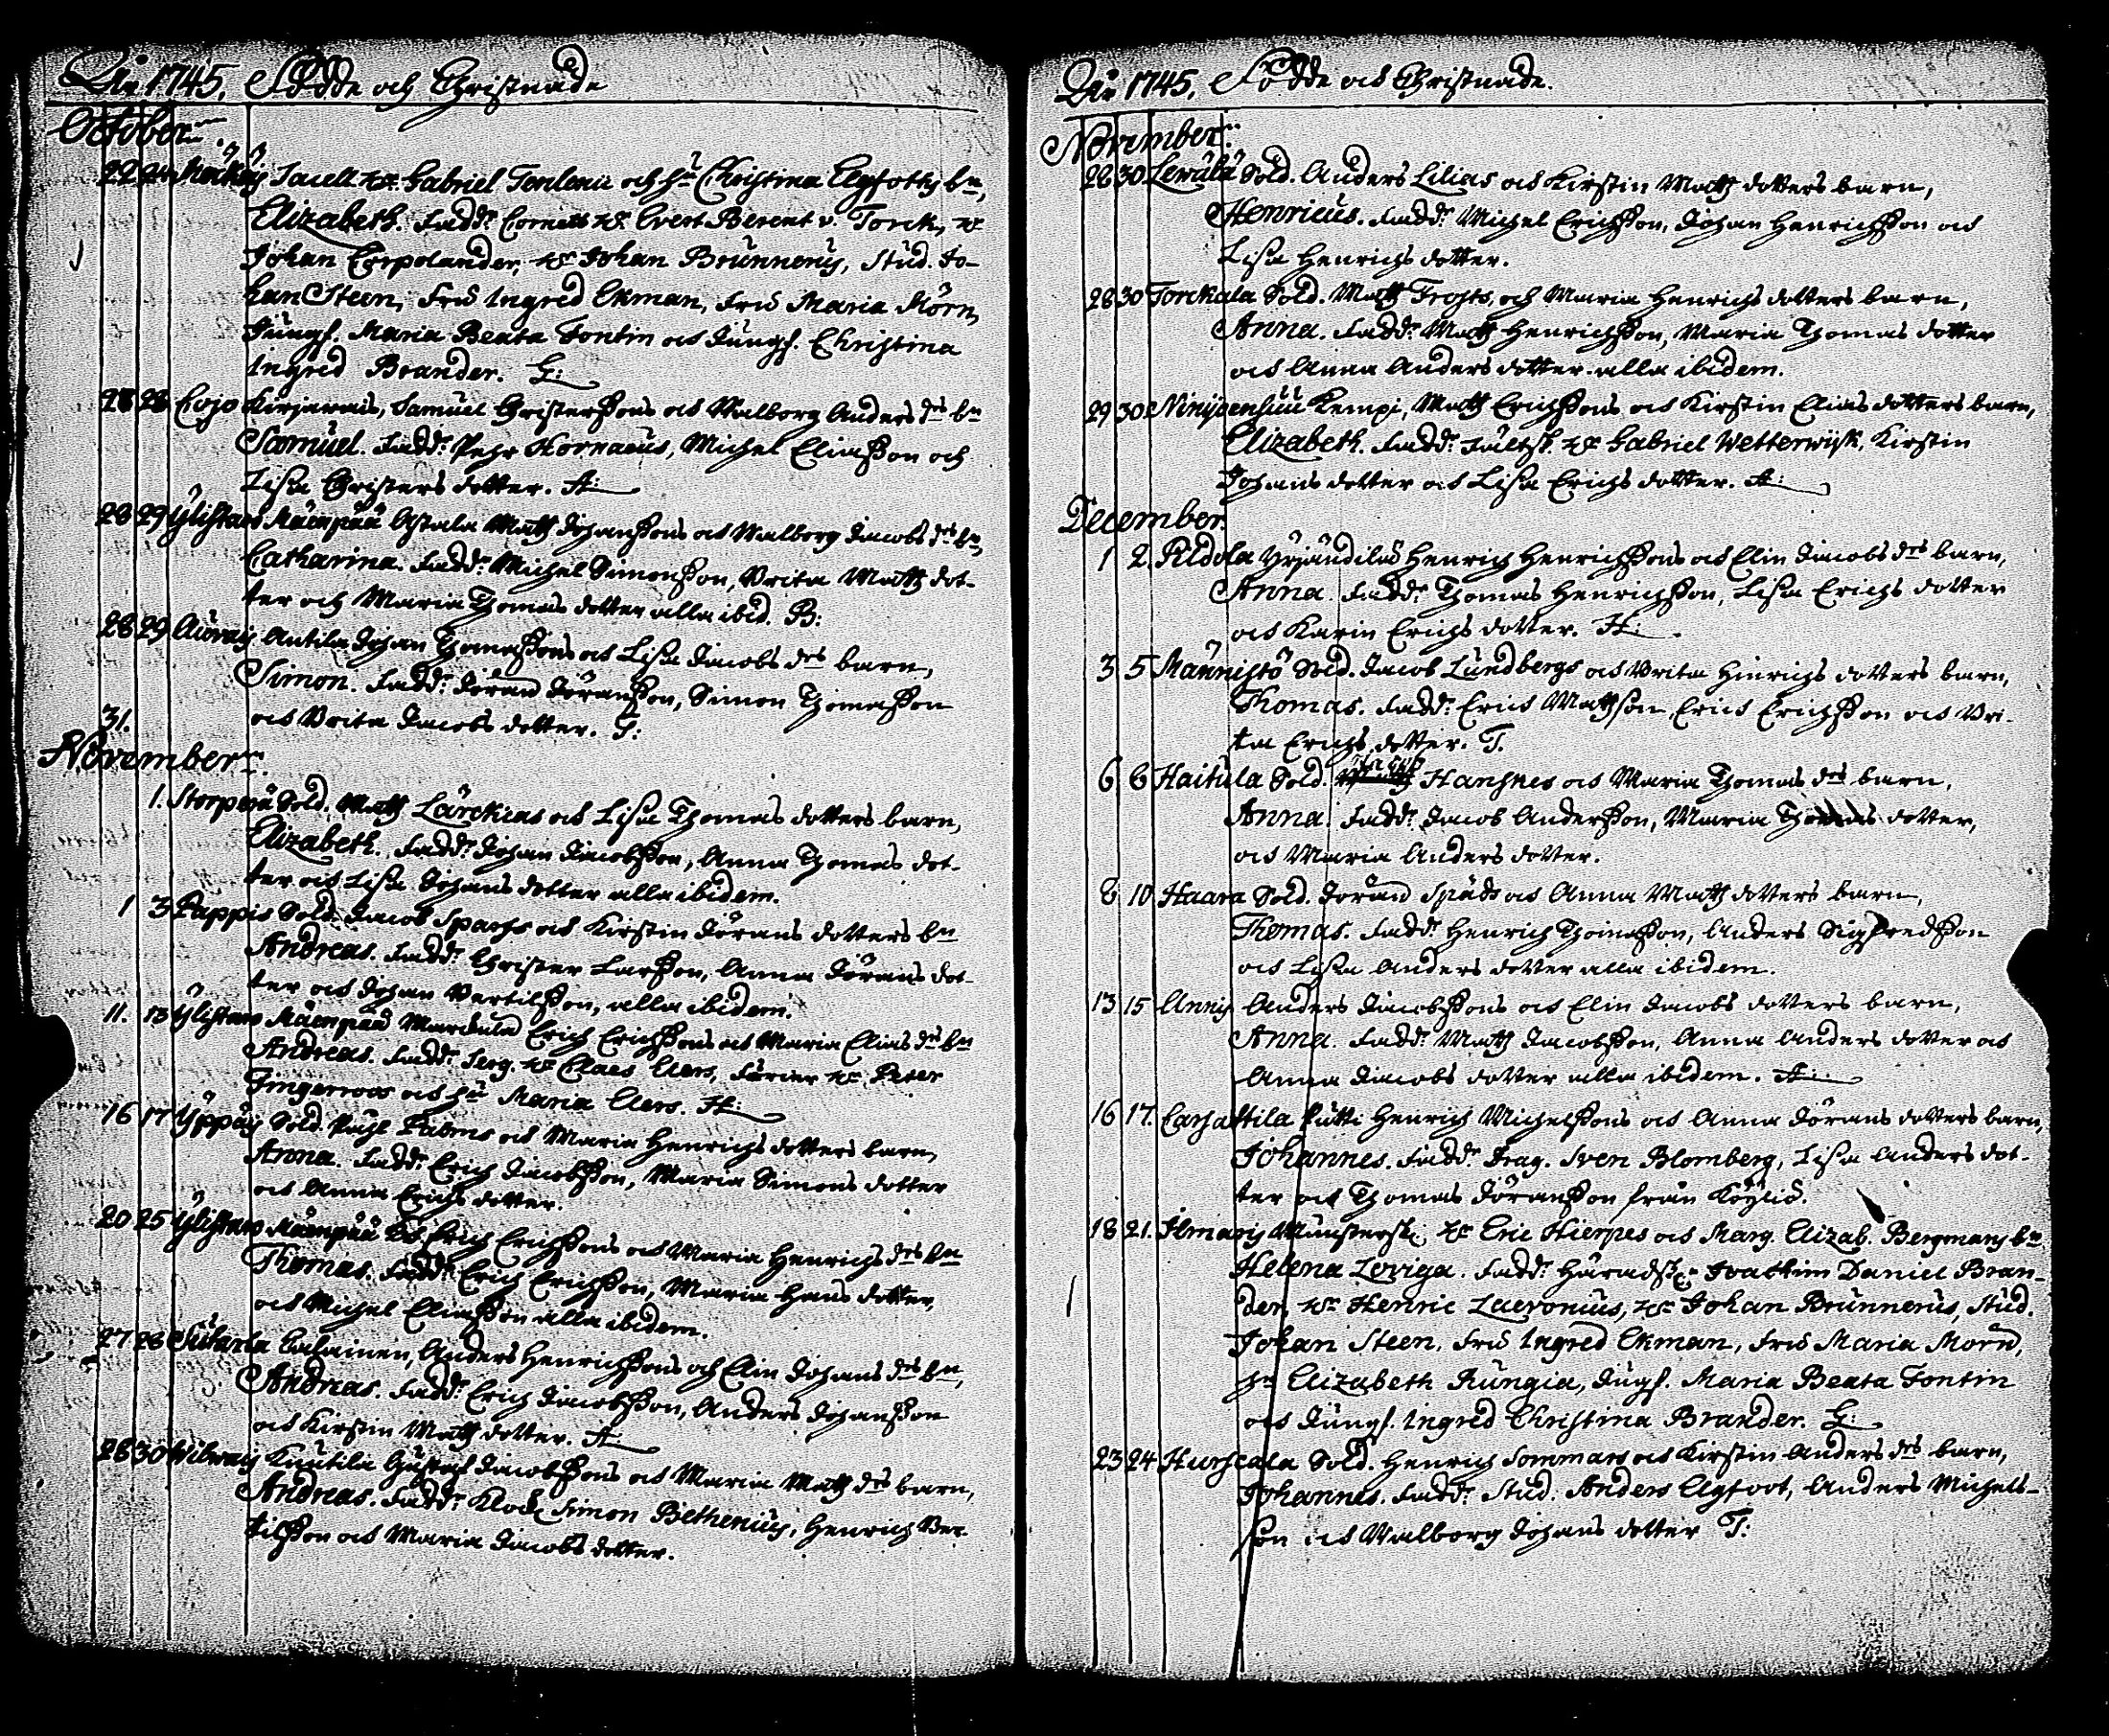 Åhr 1745. Födde och Christnade
October.
22 24 Möckäis Sacell. hr. Gabriel Tenlenii och hu Christina Elgfotts bn,
Elizabeth. Fadd. Cornett hr. Evert Berent v. Torck, hr
Johan Corpolander, hr Johan Brunnerus, Stud. Jo-
han Steen, Fru Ingred Ekman, Fru Maria Mörn,
Jungf. Maria Beata Fontin och Jungf. Christina
Ingred Brander. G:
28 28 Cojo Kirjavais, Samuel Christerssons och Walborg Anders drs bn
Samuel. Fadd. Pehr Hornaeus, Michel Eliasson och
Lisa Christers dotter. A:
28 29 Ylistaro Mäenpää Astala Matts Johanssons och Walborg Jacobs drs bn,
Catharina. Fadd. Michel Simonsson, Brita Matts dot-
ter och Maria Thomas dotter alla ibid. B:
28 29 Auvais Antila Johan Thomassons och Lisa Jacobs drs barn,
Simon. Fadd. Jöran Jöransson, Simon Thomasson
och Brita Jacobs dotter. T:
31.
November.
1. Storperä Sold. Matts Lärckias och Lisa Thomas dotters barn,
Elizabeth. Fadd. Johan Jacobsson, Anna Thomas dot-
ter och Lisa Johans dotter alla ibidem.
1 3 Pappis Sold. Jacob Sparfs och Kirstin Jörans dotters bn
Andreas. Fadd. Christer Larsson, Anna Jörans dot-
ter och Johan Bertilsson, alla ibidem.
11. 13 Ylistaro Mäenpää Marckula Erich Erichssons och Maria Elias drs bn
Andreas. Fadd. Serg. hr Claes Aers, Furier hr. Peter
Fingerroos och hu Maria Aers. H:
16 17 Yppäis Sold. Påhl Palms och Maria Henrichs dotters barn,
Anna. Fadd. Erich Jacobsson, Maria Simons dotter
och Anna Erichs dotter.
20 25 Ylistaro Mäenpää Erich Erichssons och Maria Henrichs drs bn
Thomas. Fadd. Erich Erichsson, Maria Hans dotter,
och Michel Eliasson alla ibidem.
27 28 Sutarla Calainen, Anders Henrichssons och Elin Johans drs bn,
Andreas. Fadd. Erich Jacobsson, Anders Johansson
och Kirstin Matts dotter. A:
28 30 Wibrais Knutila Gustaf Jacobssons och Maria Matts drs barn,
Andreas. Fadd. Klock. Simon Bethenius, Henrich Ber-
tilsson och Maria Jacobs dotter.
Åhr 1745. Födde och Christnade.
November.
28 30 Lewälä Sold. Anders Lilias och Kirstin Matts dotters barn,
Henricus. Fadd. Michel Erichsson, Johan Henrichsson och
Lisa Henrichs dotter.
28 30 Torckala Sold. Matts Frosts, och Maria Henrichs dotters barn,
Anna. Fadd. Matts Henrichsson, Maria Thomas dotter
och Anna Anders dotter alla ibidem.
29 30 Ninijoensuu Kempi, Matts Erichssons och Kirstin Elias dotters barn,
Elizabeth. Fadd. Fältsk. hr Gabriel Wetterwijk, Kirstin
Johans dotter och Lisa Erichs dotter. A:
December.
1 2. Pildola Yrjändilä Henrich Henrichssons och Elin Jacobs drs barn,
Anna. Fadd. Thomas Henrichsson, Lisa Erichs dotter
och Karin Erichs dotter. H:
3 5 Männistö Sold. Jacob Lundbergs och Brita Hinrichs dotters barn,
Thomas. Fadd. Erich Mattsson Erich Erichsson och Bri-
ta Erichs dotter. T.
6 6 Haitula Sold. Hansnes och Maria Thomas drs barn,
Anna. Fadd. Jacob Andersson, Maria Thomas dotter,
och Maria Anders dotter.
8 10 Haara Sold. Jöran Späds och Anna Matts dotters barn,
Thomas. Fadd. Henrich Thomasson, Anders Sigfredsson
och Lisa Anders dotter alla ibidem.
13 15 Annis Anders Jacobssons och Elin Jacobs dotters barn,
Anna. Fadd. Matts Jacobsson, Anna Anders dotter och
Anna Jacobs dotter alla ibidem. A:
16 17. Carhattila Putti Henrich Michelssons och Anna Jörans dotters barn,
Johannes. Fadd. Drag. Sven Blomberg, Lisa Anders dot-
ter och Thomas Jöransson från Köyliö.
18 21. Ilmaris Munsterskr. hr Eric Hierpes och Marg. Elizab. Bergmans bn
Helena Loviga. Fadd. Häradskr. Joachim Daniel Bran-
der, hr Henric Laevonius, hr Johan Brunnerus, Stud.
Johan Steen, Fru Ingred Ekman, Fru Maria Mörn,
hu Elizabeth Rungia, Jungf. Maria Beata Fontin
och Jungf. Ingred Christina Brander. G:
23 24 Hurscala Sold. Henrich Sommars och Kirstin Anders drs barn,
Johannes. Fadd. Stud. Anders Elgfoot, Anders Michels-
son och Walborg Johans dotter T: